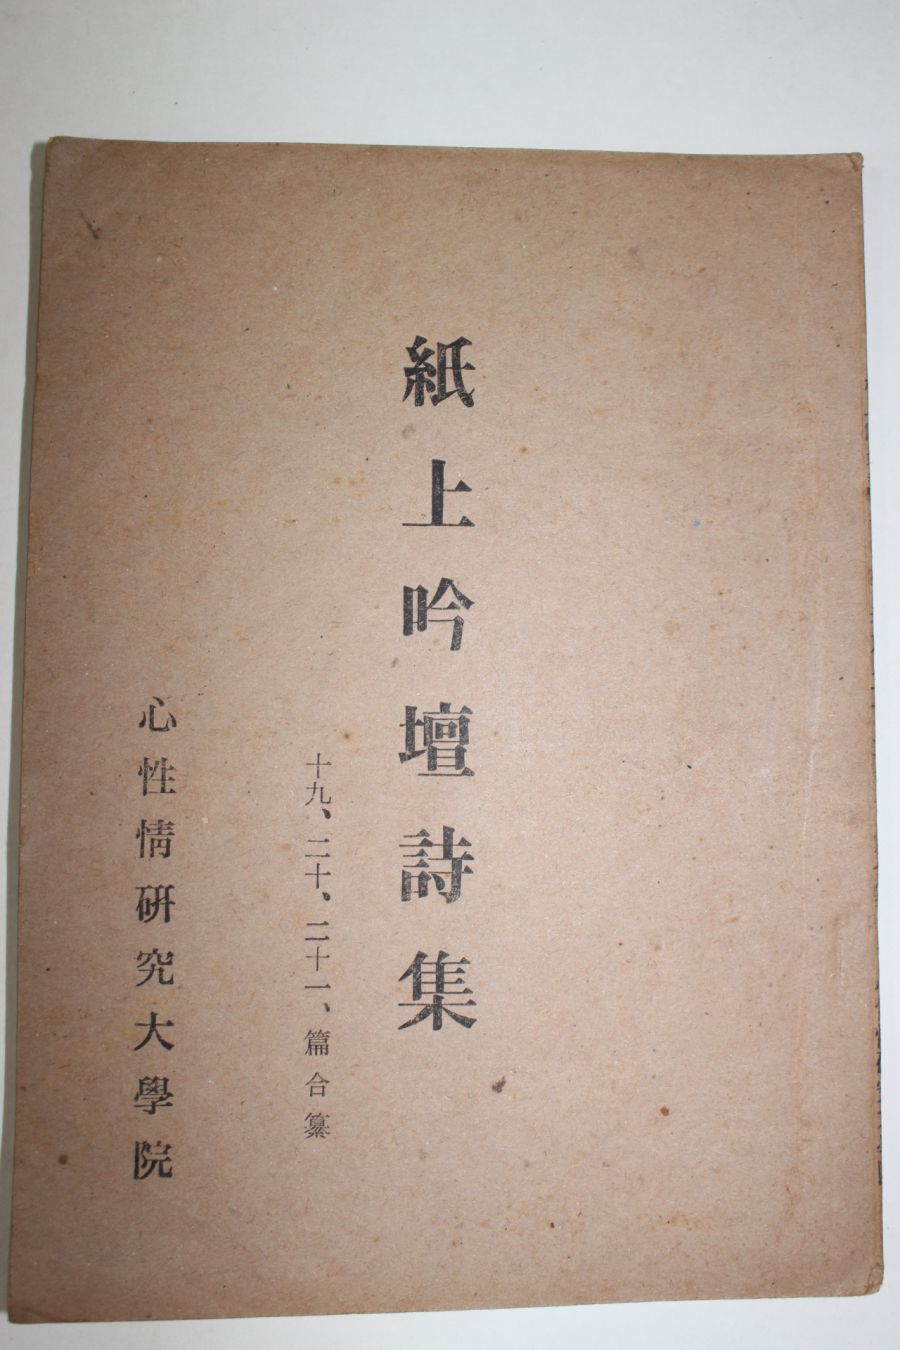 紙上吟壇詩集
十九、二十、二十一、篇合纂
心性情硏究大學院